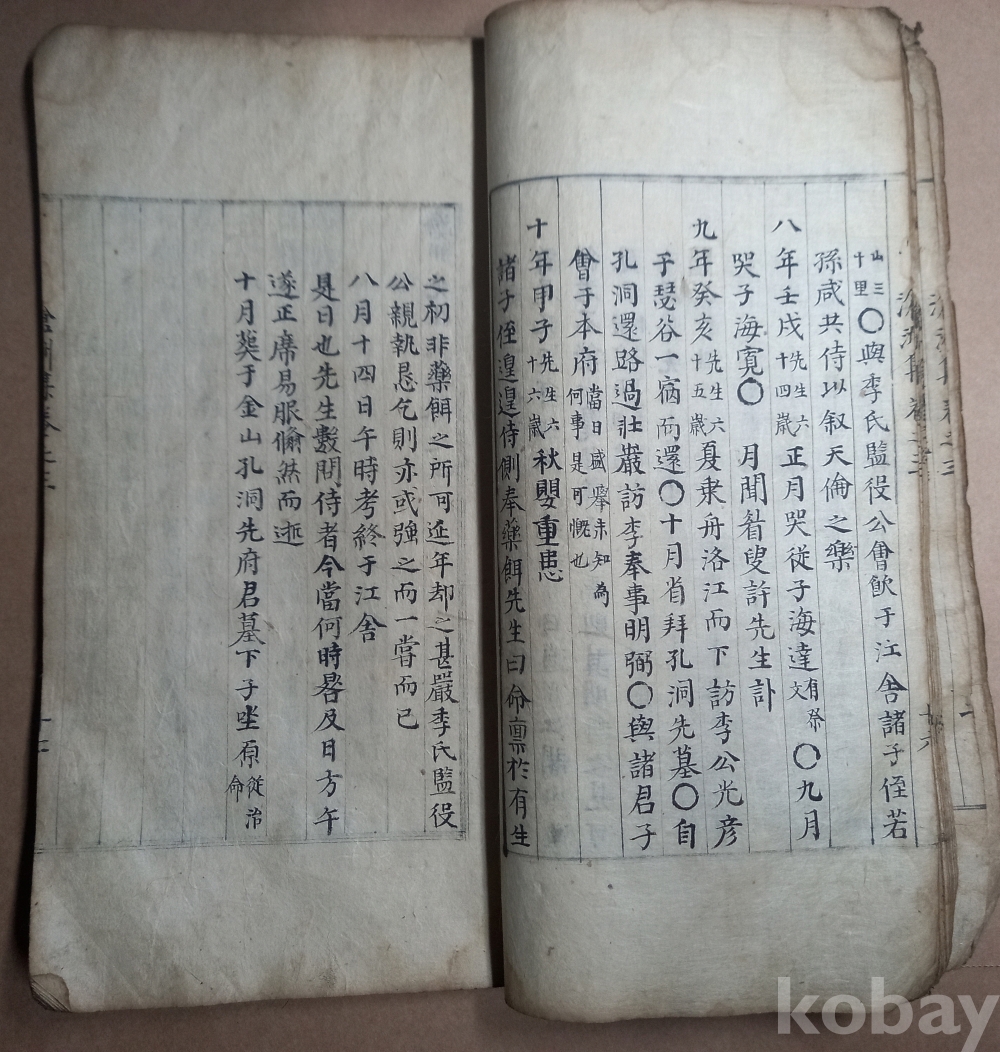 山三十里〇與季氏監役公會飮于江舍諸子侄若
孫咸共侍以叙天倫之樂
八年壬戌先生六十四歲正月哭從子海達有祭文〇九月
哭子海寬〇 月聞眢叟許先生訃
九年癸亥先生六十五歲夏乘舟洛江而下訪李公光彦
于瑟谷一宿而還〇十月省拜孔洞先墓〇自
孔洞還路過壯巖訪李奉事明弼〇與諸君子
會于本府當日盛擧未知爲何事是可慨也
十年甲子先生六十六歲秋嬰重患
諸子侄遑遑侍側奉藥餌先生曰命禀於有生
之初非藥餌之所可延年却之甚嚴季氏監役
公親執恳乞則亦或強之而一嘗而已
八月十四日午時考終于江舍
是日也先生數問侍者今當何時晷及日方午
遂正席易服翛然而逝
十月葬于金山孔洞先府君墓下子坐原從治命
kobay